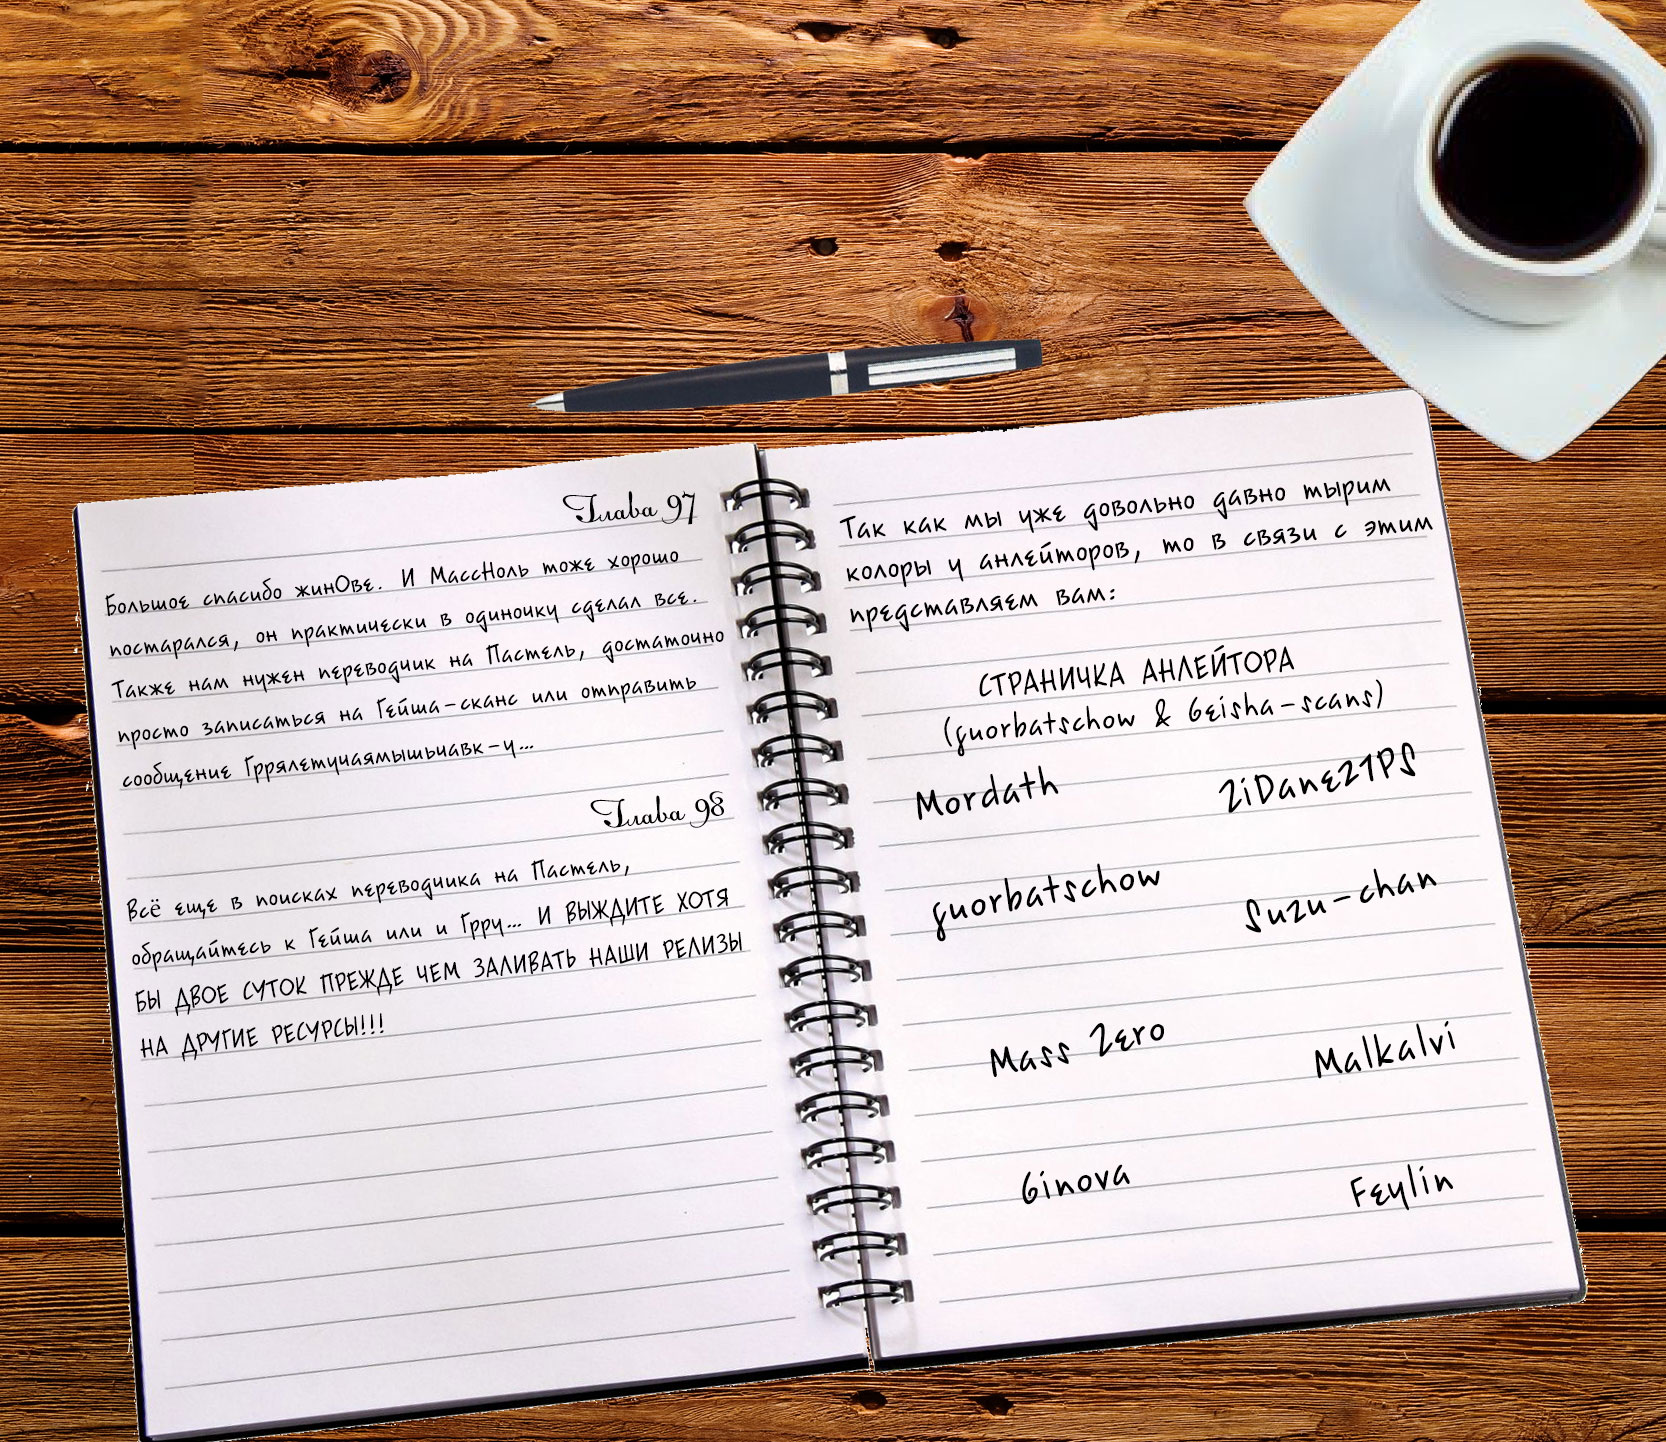 Глава 97
Большое спасибо жинОве. И МассНоль тоже хорошо
постарался, он практически в одиночку сделал все.
Также нам нужен переводчик на Пастель, достаточно
просто записаться на Гейша-сканс или отправить
сообщение Гррялетучаямышьчавк-у...
Глава 98
Всё еще в поисках переводчика на Пастель,
обращайтесь к Гейша или и Грру... И ВЫЖДИТЕ ХОТЯ
БЫ ДВОЕ СУТОК ПРЕЖДЕ ЧЕМ ЗАЛИВАТЬ НАШИ РЕЛИЗЫ
НА ДРУГИЕ РЕСУРСЫ!!!
Так как мы уже довольно давно тырим
колоры у анлейторов, то в связи с этим
представляем вам:
СТРАНИЧКА АНЛЕЙТОРА
(guorbatschow & Geisha-scans)
Mordath ZiDane21PS
guorbatschow Suzu-chan
Mass Zero Malkalvi
Ginova Feylin